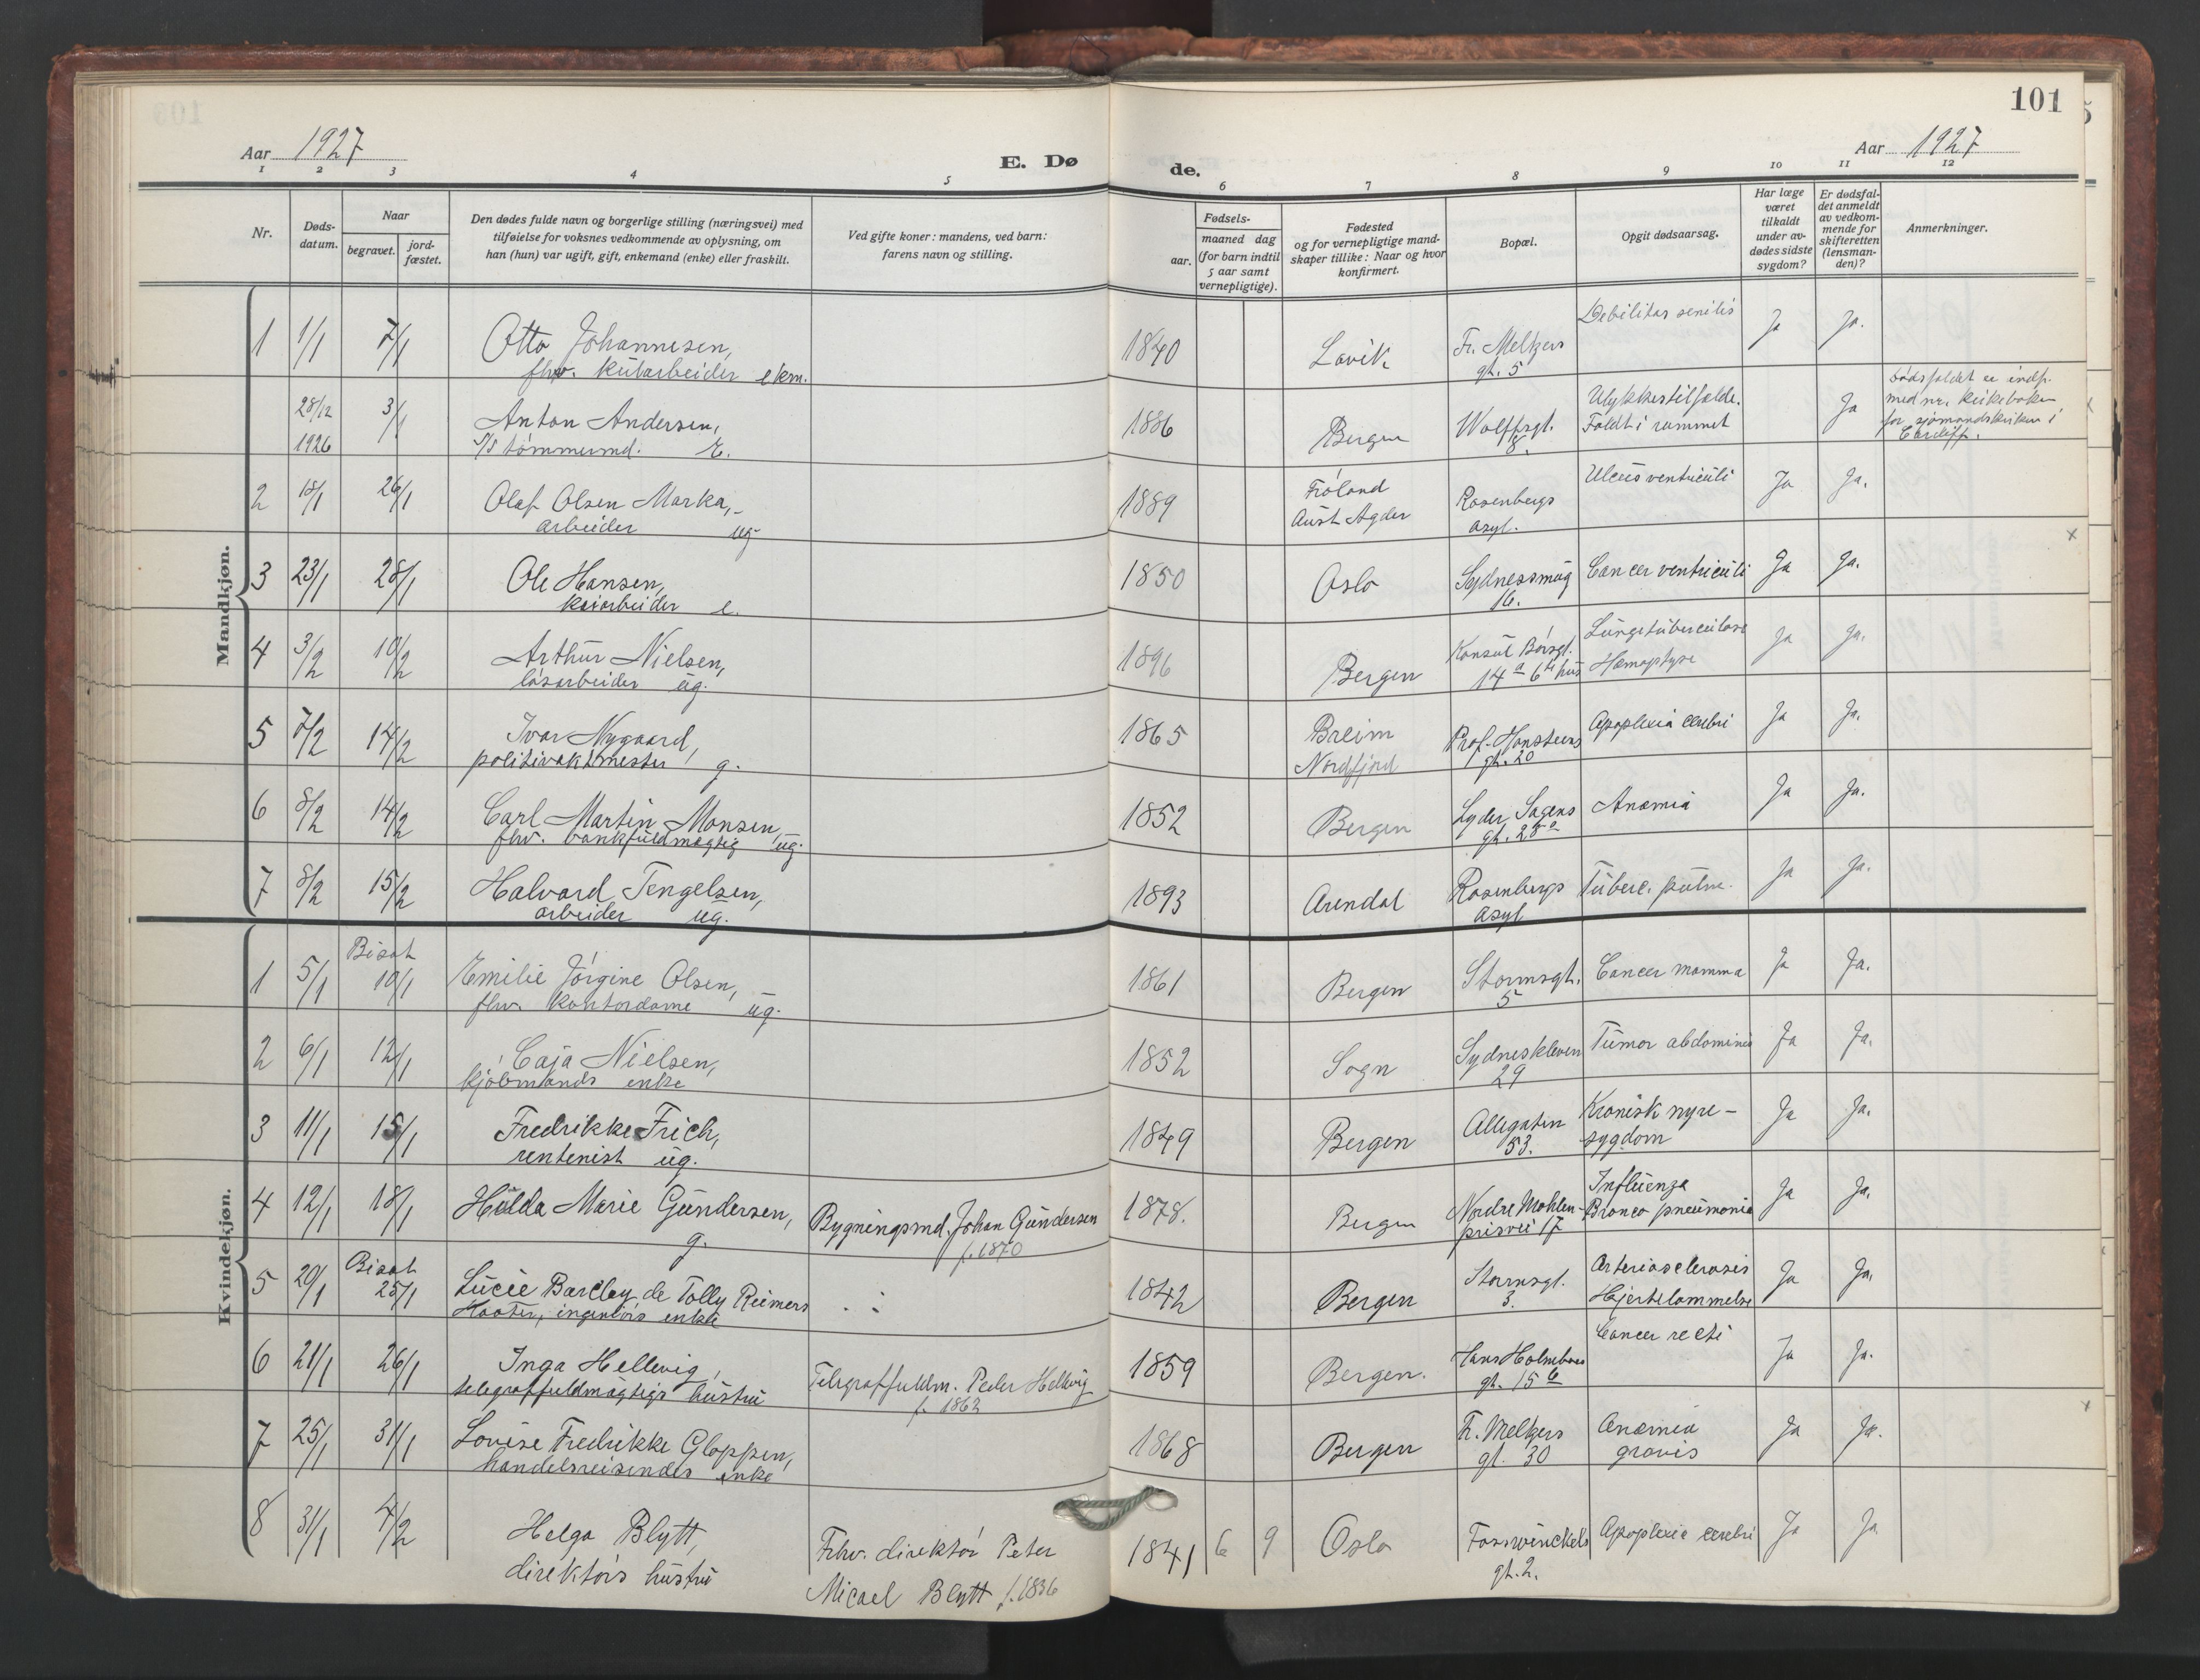 101
Aar 1927
E. Døde.
Aar 1927
1 2 3 4 5 6 7 8 9 10 11 12
Nr.
Døds-datum.
Naar
begravet.
jord-fæstet.
Den dødes fulde navn og borgerlige stilling (næringsvei) med
tilføielse for voksnes vedkommende av oplysning, om
han (hun) var ugift, gift, enkemand (enke) eller fraskilt.
Ved gifte koner: mandens, ved barn:
farens navn og stilling.
Fødsels-
aar.
maaned dag
(for barn indtil
5 aar samt
vernepligtige).
Fødested
og for vernepligtige mand-
skaper tillike: Naar og hvor
konfirmert.
Bopæl.
Opgit dødsaarsag.
Har læge
været
tilkaldt
under av-
dødes sidste
sygdom?
Er dødsfal-
det anmeldt
av vedkom-
mende for
skifteretten
(lensman-
den)?
Anmerkninger.
Mandkjøn.
1 1/1 7/1 Otto Johannesen, 1840 Lavik Fr. Meltzers Debilitas senilis Ja Ja.
fhv. kularbeider ekm. gt. 5
28/12 3/1 Anton Andersen, 1886 Bergen Wolffsgt. Ulykkestilfælde. Ja dødsfaldet er indf.
1926 S/S tømmermd. E. 8. Faldt i rummet med nr. i kirkeboken
for sjømandskirken i
Cardiff.
2 18/1 26/1 Olaf Olsen Marka, 1889 Fröland Rosenbergs Ulcus ventriculi Ja Ja.
arbeider ug. Aust Agder asyl.
3 23/1 28/1 Ole Hansen, 1850 Oslo Sydnessmug Cancer ventriculi Ja Ja.
kaiarbeider e. 16.
4 3/2 10/2 Arthur Nielsen, 1896 Bergen Konsul Børsgt. Lungetuberculose Ja Ja.
løsarbeider ug. 14a 6te hus Hæmoptyse
5 7/2 14/2 Ivar Nygaard, 1865 Breim Prof. Hansteens Apoplexia cerebri Ja Ja.
politivaktmester g. Nordfjord gt. 20
6 8/2 14/2 Carl Martin Monsen, 1852 Bergen Lyder Sagens Anæmia Ja Ja.
fhv. bankfuldmægtig ug. gt. 28a
7 8/2 15/2 Halvard Tengelsen, 1893 Arendal Rosenbergs Tuberc. pulm. Ja Ja.
arbeider ug. asyl
Kvindekjøn.
1 5/1 Bisat 10/1 Emilie Jørgine Olsen, 1861 Bergen Stormsgt. Cancer mamma Ja Ja.
fhv. kontordame ug. 5
2 6/1 12/1 Caja Nielsen, 1852 Sogn Sydneskleven Tumor abdominis Ja Ja.
kjøbmands enke 29
3 11/1 15/1 Fredrikke Frich, 1849 Bergen Allegaten Kronisk nyre- Ja Ja.
rentenist ug. 53. sygdom
4 12/1 18/1 Hilda Marie Gundersen, Bygningsmd. Johan Gundersen 1878. Bergen Nordre Møhlen- Influenza Ja Ja.
g. f. 1870 prisvei 17 Bronco pneumonia
5 20/1 Bisat 25/1 Lucie Barclay de Tolly Reimers 1842 Bergen Stormsgt. Arteriosclerosis Ja Ja.
ingeniørs enke 3. Hjertelammelse
6 21/1 26/1 Inga Hellevig, Telegraffuldm. Peder Hellevig 1859 Bergen. Hans Holmboes Cancer recti Ja Ja.
telegraffuldmægtigs hustru f. 1862 gt. 15 b
7 25/1 31/1 Lovise Fredrikke Gloppen, 1868 Bergen Fr. Meltzers Anæmia Ja Ja.
handelsreisendes enke gt. 30 gravis
8 31/1 4/2 Helga Blytt, Fhv. direktør Peter 1841 6 9 Oslo Fosswinckels Apoplexia cerebri Ja Ja
direktørs hustru Micael Blytt f. 1836 gt. 2.